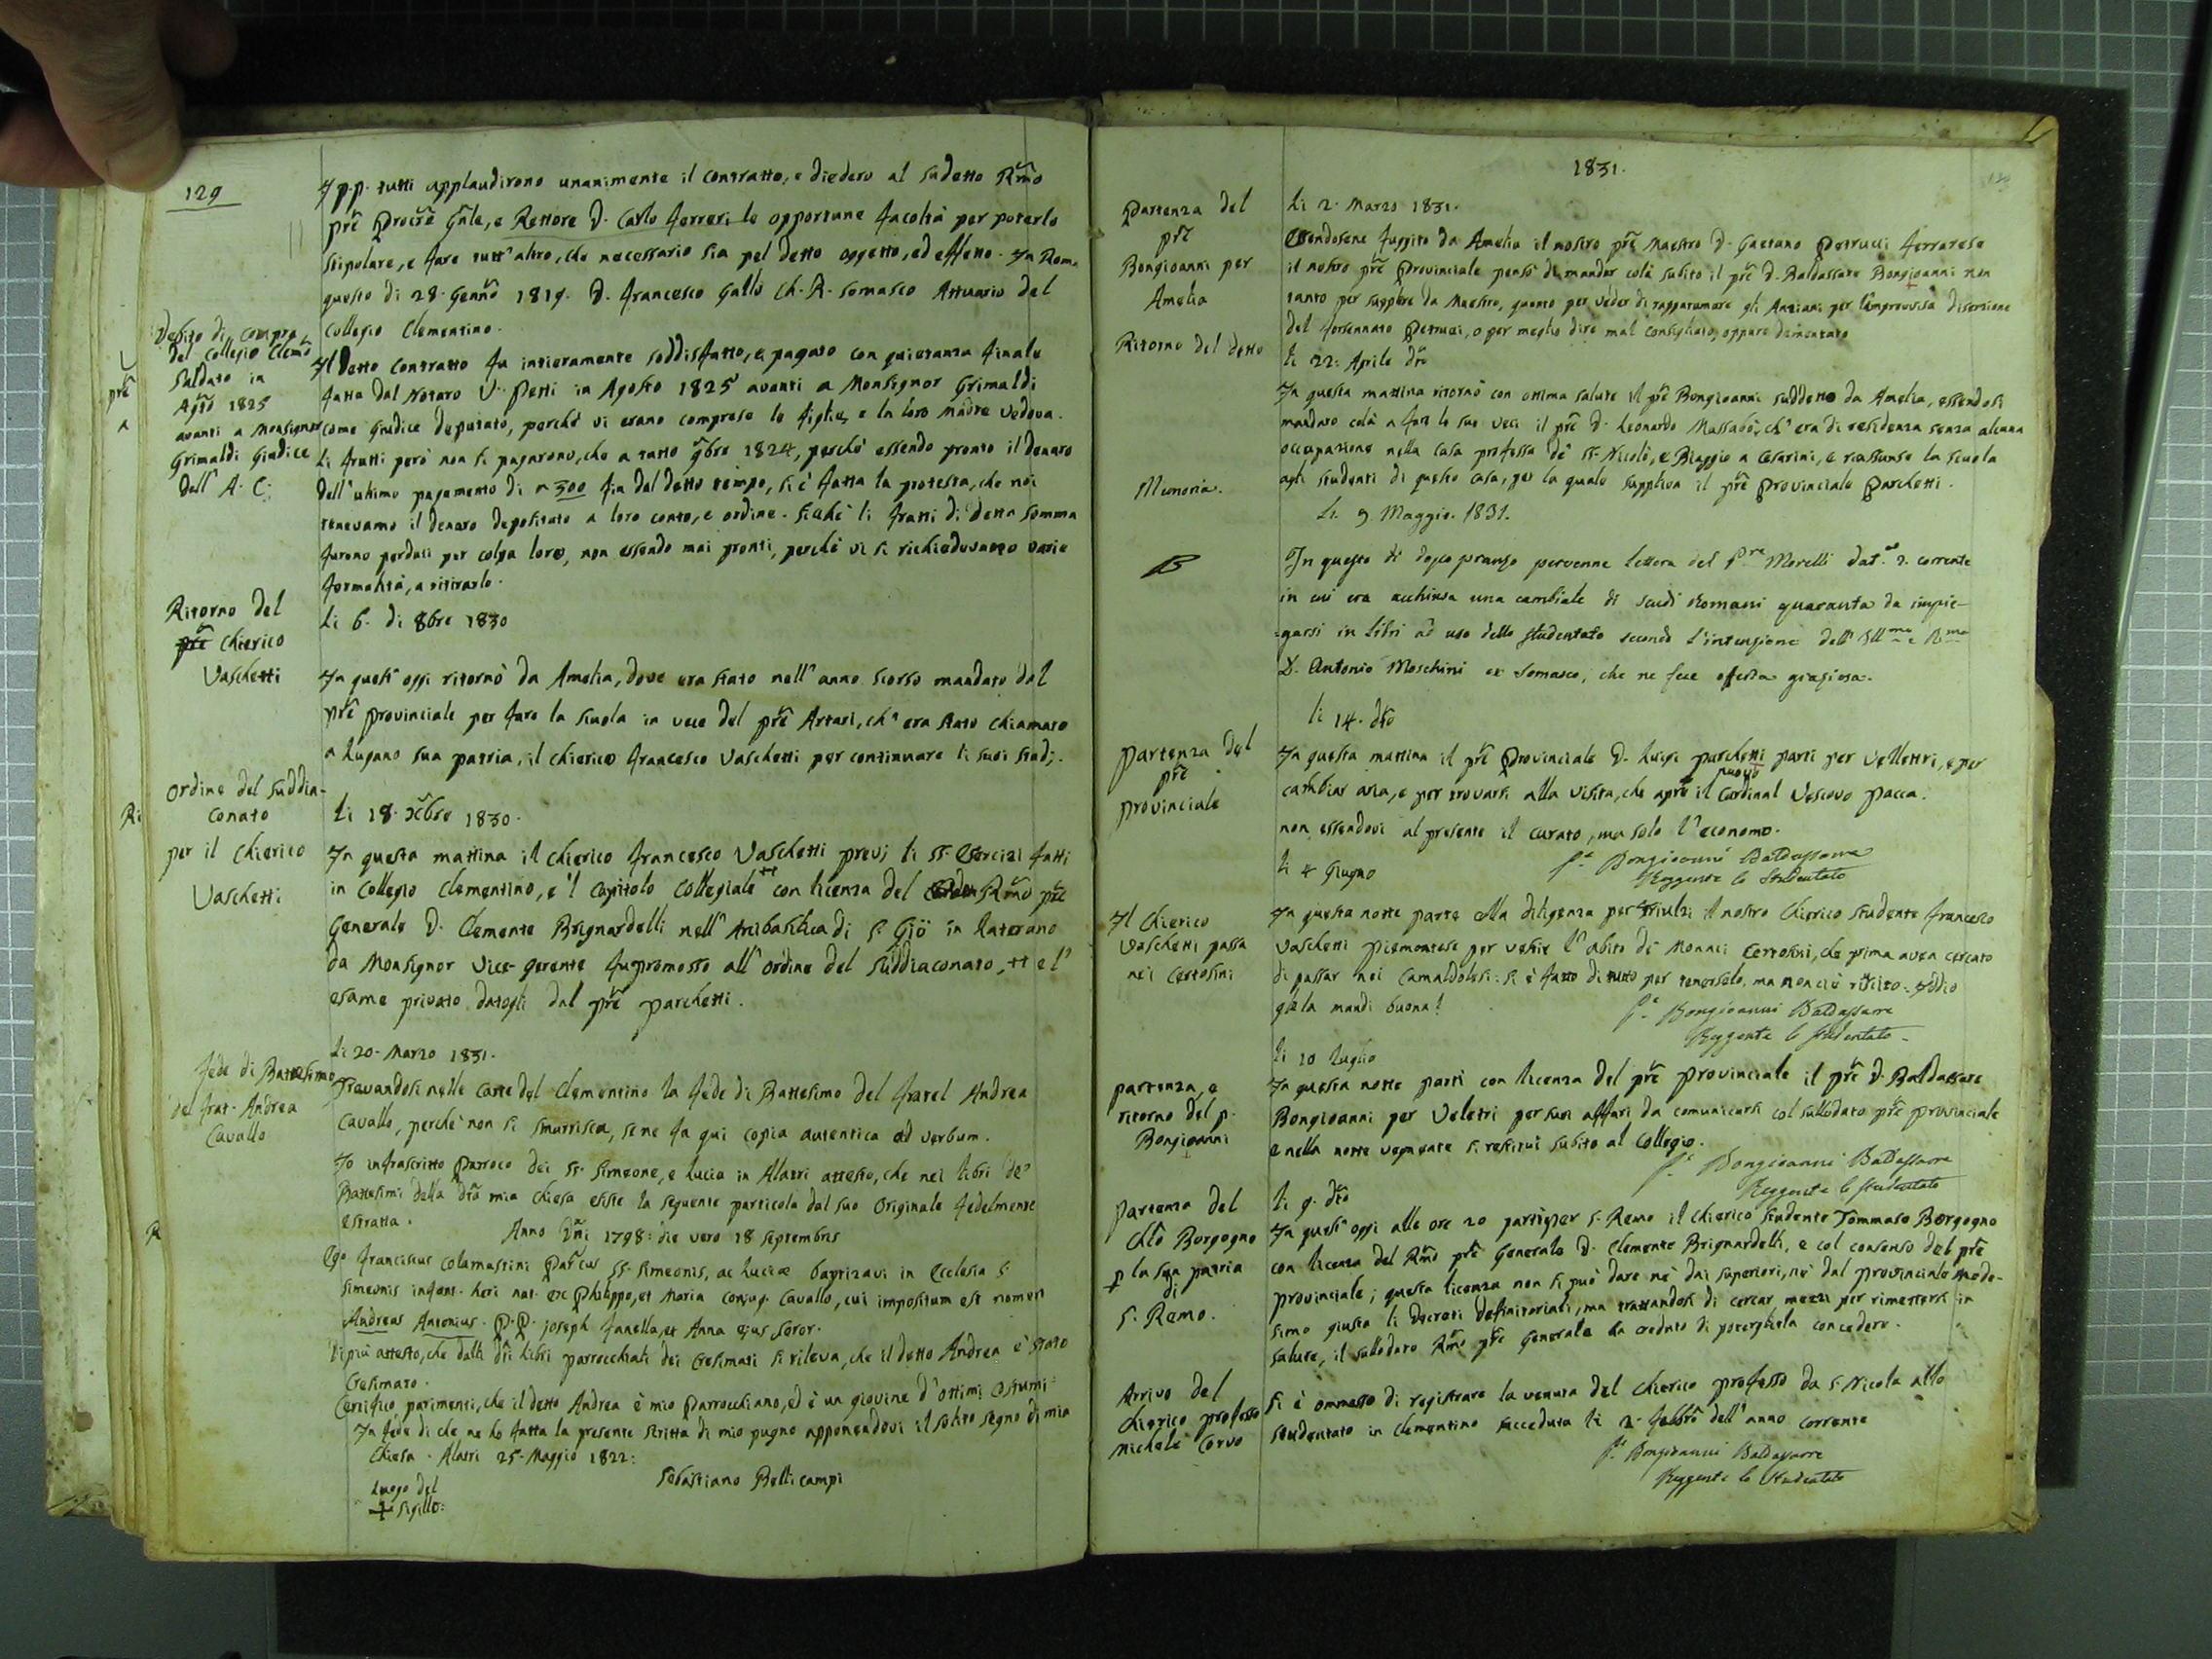 129
I pp. tutti applaudirono unanimente il contratto, e diedero al sudetto Rm̃o
prẽ Procrẽ Gñle, e Rettore D. Carlo Ferreri le opportune facoltà per poterlo
stipolare, e fare tutt'altro, che necessario sia pel detto oggetto, ed effetto. In Roma
questo di 28. Genñro 1819. D. Francesco Gallo Ch. R. Somasco Attuario del
Collegio Clementino.
Debito di compra
del Collegio Clemño
Saldato in
Agt̃o 1825
avanti a Monsignor
Grimaldi Giudice
dell' A. C.
Il Detto contratto fu intieramente soddisfatto, e pagato con quietanza finale
fatta dal Notaro V. Petti in Agosto 1825 avanti a Monsignor Grimaldi
come Giudice deputato, perchè vi erano comprese le figlie, e la loro madre vedova.
Li frutti però non si pagarono, che a tutto 9bre 1824, perchè essendo pronto il denaro
dell'ultimo pagamento di 300 fin dal detto tempo, si è fatta la protesta, che noi
tenevamo il denaro depositato a loro conto, e ordine. Sicchè li frutti di detta somma
furono perduti per colpa loro, non essendo mai pronti, perchè vi si richiedevano varie
formalità, a ritirarlo.
Ritorno del
prẽ Chierico
Vaschetti
Li 6. di 8bre 1830
In quest'oggi ritornò da Amelia, dove era stato nell'anno scorso mandato dal
prẽ Provinciale per fare la scuola in vece del prẽ Artari, ch'era stato chiamato
a Lugano sua patria, il chierico Francesco Vaschetti per continuare li suoi studj.
Ordine del Suddia-
conato
per il Chierico
Vaschetti
Li 18. Xc̃bre 1830.
In questa mattina il chierico Francesco Vaschetti previ li SS. Esercizi fatti
in Collegio Clementino, e 'l Capitolo Collegiale ++ con licenza del Rm̃o prẽ
Generale D. Clemente Brignardelli nell'Arcibasilica di S. Giõ in Laterano
da Monsignor Vice-gerente fu promosso all'ordine del Suddiaconato, ++ e l'
esame privato datogli dal prẽ Parchetti.
Li 20. Marzo 1831.
Fede di Battesimo
del frat. Andrea
Cavallo
Trovandosi nelle carte del Clementino la fede di Battesimo del fratel Andrea
Cavallo, perchè non si smarrisca, se ne fa qui copia autentica ad verbum.
Io infrascritto Parroco dei SS. Simeone, e Lucia in Alatri attesto, che nei libri de'
Battesimi della dt̃a mia Chiesa esiste la seguente particola dal suo Originale fedelmente
estratta.
Anno Dñi 1798: die vero 18 septembris
Ego Franciscus Colamastini Par̃cus SS. Simeonis, ac Luciæ baptizavi in Ecclesia S.
Simeonis infant. heri nat. ex Philippo, et Maria Conjug. Cavallo, cui impositum est nomen
Andreas Antonius. P. P. Joseph Fanella, et Anna ejus Soror.
Di più attesto, che dalli dt̃i libri parrocchiali dei Cresimati si rileva, che il detto Andrea è stato
Cresimato.
Certifico parimenti, che il detto Andrea è mio Parrocchiano, ed è un giovine d'ottimi costumi:
In fede di che ne ho fatta la presente scritta di mio pugno apponendovi il solito segno di mia
Chiesa. Alatri 25. Maggio 1822:
Sebastiano Bellicampi
Luogo del
+ Sigillo:
1831.
Partenza del
prẽ
Bongioanni per
Amelia
Li 2. Marzo 1831.
Essendosene fuggito da Amelia il nostro prẽ Maestro D. Gaetano Petrucci Ferrarese
il nostro prẽ Provinciale pensò di mandar colà subito il prẽ D. Baldassare Bongioanni non
tanto per supplire da Maestro, quanto per veder di rappatumare gli Anziani per l'improvvisa diserzione
del forsennato Petrucci, o per meglio dire mal consigliato, oppure dementato
Ritorno del detto
Li 22: Aprile dt̃o
In questa mattina ritornò con ottima salute il prẽ Bongioanni suddetto da Amelia, essendosi
mandato colà a fare le sue veci il prẽ D. Leonardo Massabò, ch'era di residenza senza alcuna
occupazione nella casa professa de' SS. Nicolò, e Biaggio a Cesarini, e riassunse la scuola
agli studenti di questa casa, per la quale suppliva il prẽ Provinciale Parchetti.
Memoria.
Li 9 Maggio. 1831.
In questo dì dopo pranzo pervenne lettera del Pre Morelli dat.a 2. corrente
in cui era acchiusa una cambiale di scudi Romani quaranta da impie-
=garsi in Libri ad uso dello Studentato secondo l'intenzione dell'Illmo e Rmo
D. Antonio Moschini ex Somasco, che ne fece offerta graziosa.
li 14. dt̃o
Partenza del
prẽ
Provinciale
In questa mattina il prẽ Provinciale D. Luigi Parchetti partì per Velletri, e per
cambiar aria, e per trovarsi alla visita, che aprẽ il nuovo Cardinal Vescovo Pacca.
non essendovi al presente il curato, ma solo l'economo.
P.e Bongioanni Baldassarre
Reggente lo Studentato
Li 4 Giugno
Il Chierico
Vaschetti passa
nei Certosini
In questa notte parte colla diligenza per il nostro Chierico studente Francesco
Vaschetti Piemontese per vestir l'abito de' Monaci Certosini, che prima avea cercato
di passar nei Camaldolesi. Si è fatto di tutto per tenerselo, ma non ci è riescito. Iddio
gliela mandi buona!
P.e Bongioanni Baldassarre
Reggente lo Studentato
Li 10 Luglio
Partenza, e
ritorno del p.
Bongioanni
In questa notte partì con licenza del prẽ Provinciale il prẽ D. Baldassare
Bongioanni per Veletri per suoi affari da comunicarsi col sullodato prẽ Provinciale
e nella notte vegnente si restituì subito al Collegio.
P.e Bongioanni Baldassarre
Reggente lo Studentato
Partenza del
Borgogno
p la sua patria
di
S. Remo.
Li 9. dt̃o
In quest'oggi alle ore 20 partì per S. Remo il chierico studente Tommaso Borgogno
con licenza del Rm̃o prẽ Generale D. Clemente Brignardelli, e col consenso del prẽ
Provinciale; questa licenza non si può dare nè dai superiori, nè dal Provinciale mede-
simo giusta li decreti definitoriali, ma trattandosi di cercar mezzi per rimettersi in
salute, il sullodato Rm̃o prẽ Generale ha creduto di potergliela concedere.
Arrivo del
chierico professo
Michele Corvo
Si è ommesso di registrare la venuta del chierico professo da S. Nicola allo
studentato in Clementino succeduta li 2. Febbrõ dell'anno corrente
P.e Bongioanni Baldassarre
Reggente lo Studentato